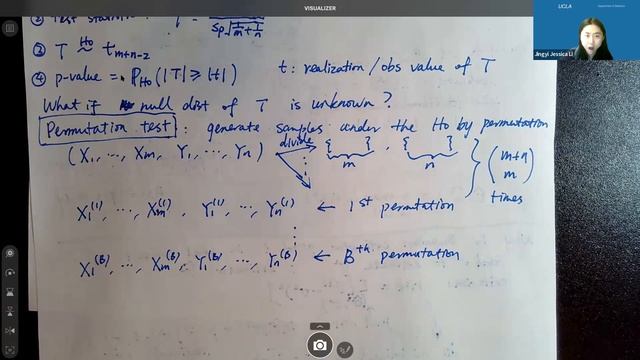 VISUALIZER
UCLA
Jingyi Jessica Li
② Test
Sp√(1/m + 1/n)
③ T ~^{H0} t_{m+n-2}
④ p-value = P_{H0} (|T| ≥ |t|)
t: realization / obs value of T
What if null dist of T is unknown?
Permutation test: generate samples under the H0 by permutation
(X1, ..., Xm, Y1, ..., Yn) divide { } m , { } n } (m+n m) times
X1^(1), ..., Xm^(1), Y1^(1), ..., Yn^(1) ← 1st permutation
X1^(B), ..., Xm^(B), Y1^(B), ..., Yn^(B) ← Bth permutation